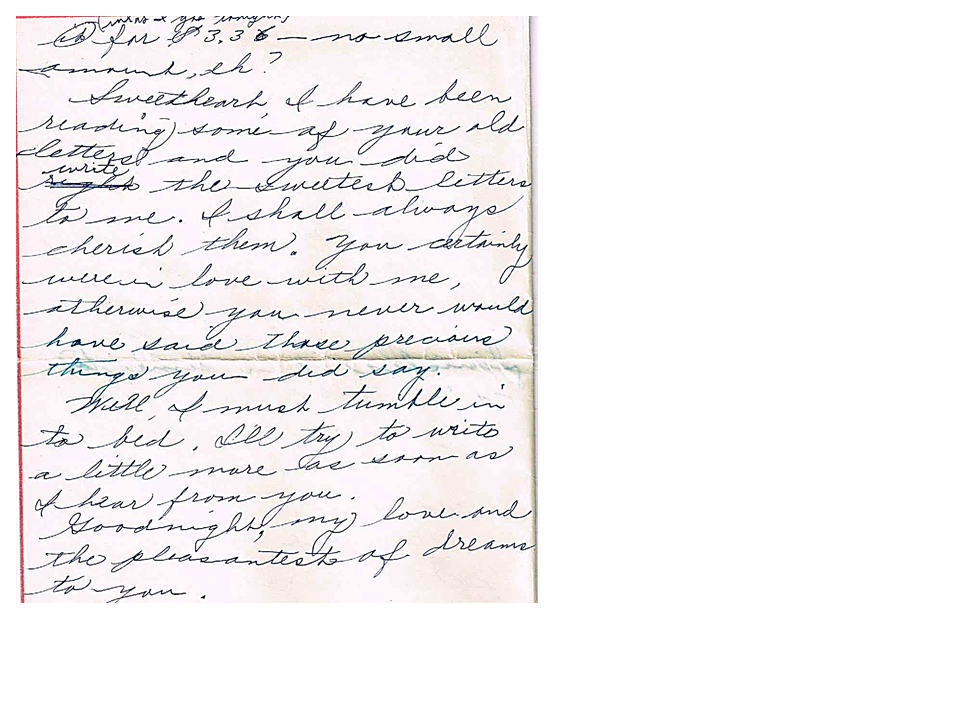 for $3.36 — no small
amount, eh?
Sweetheart I have been
reading some of your old
letters and you did
write
right the sweetest letters
to me. I shall always
cherish them. You certainly
were in love with me,
otherwise you never would
have said those precious
things you did say.
Well, I must tumble in
to bed. I'll try to write
a little more as soon as
I hear from you.
Goodnight, my love and
the pleasantest of dreams
to you.